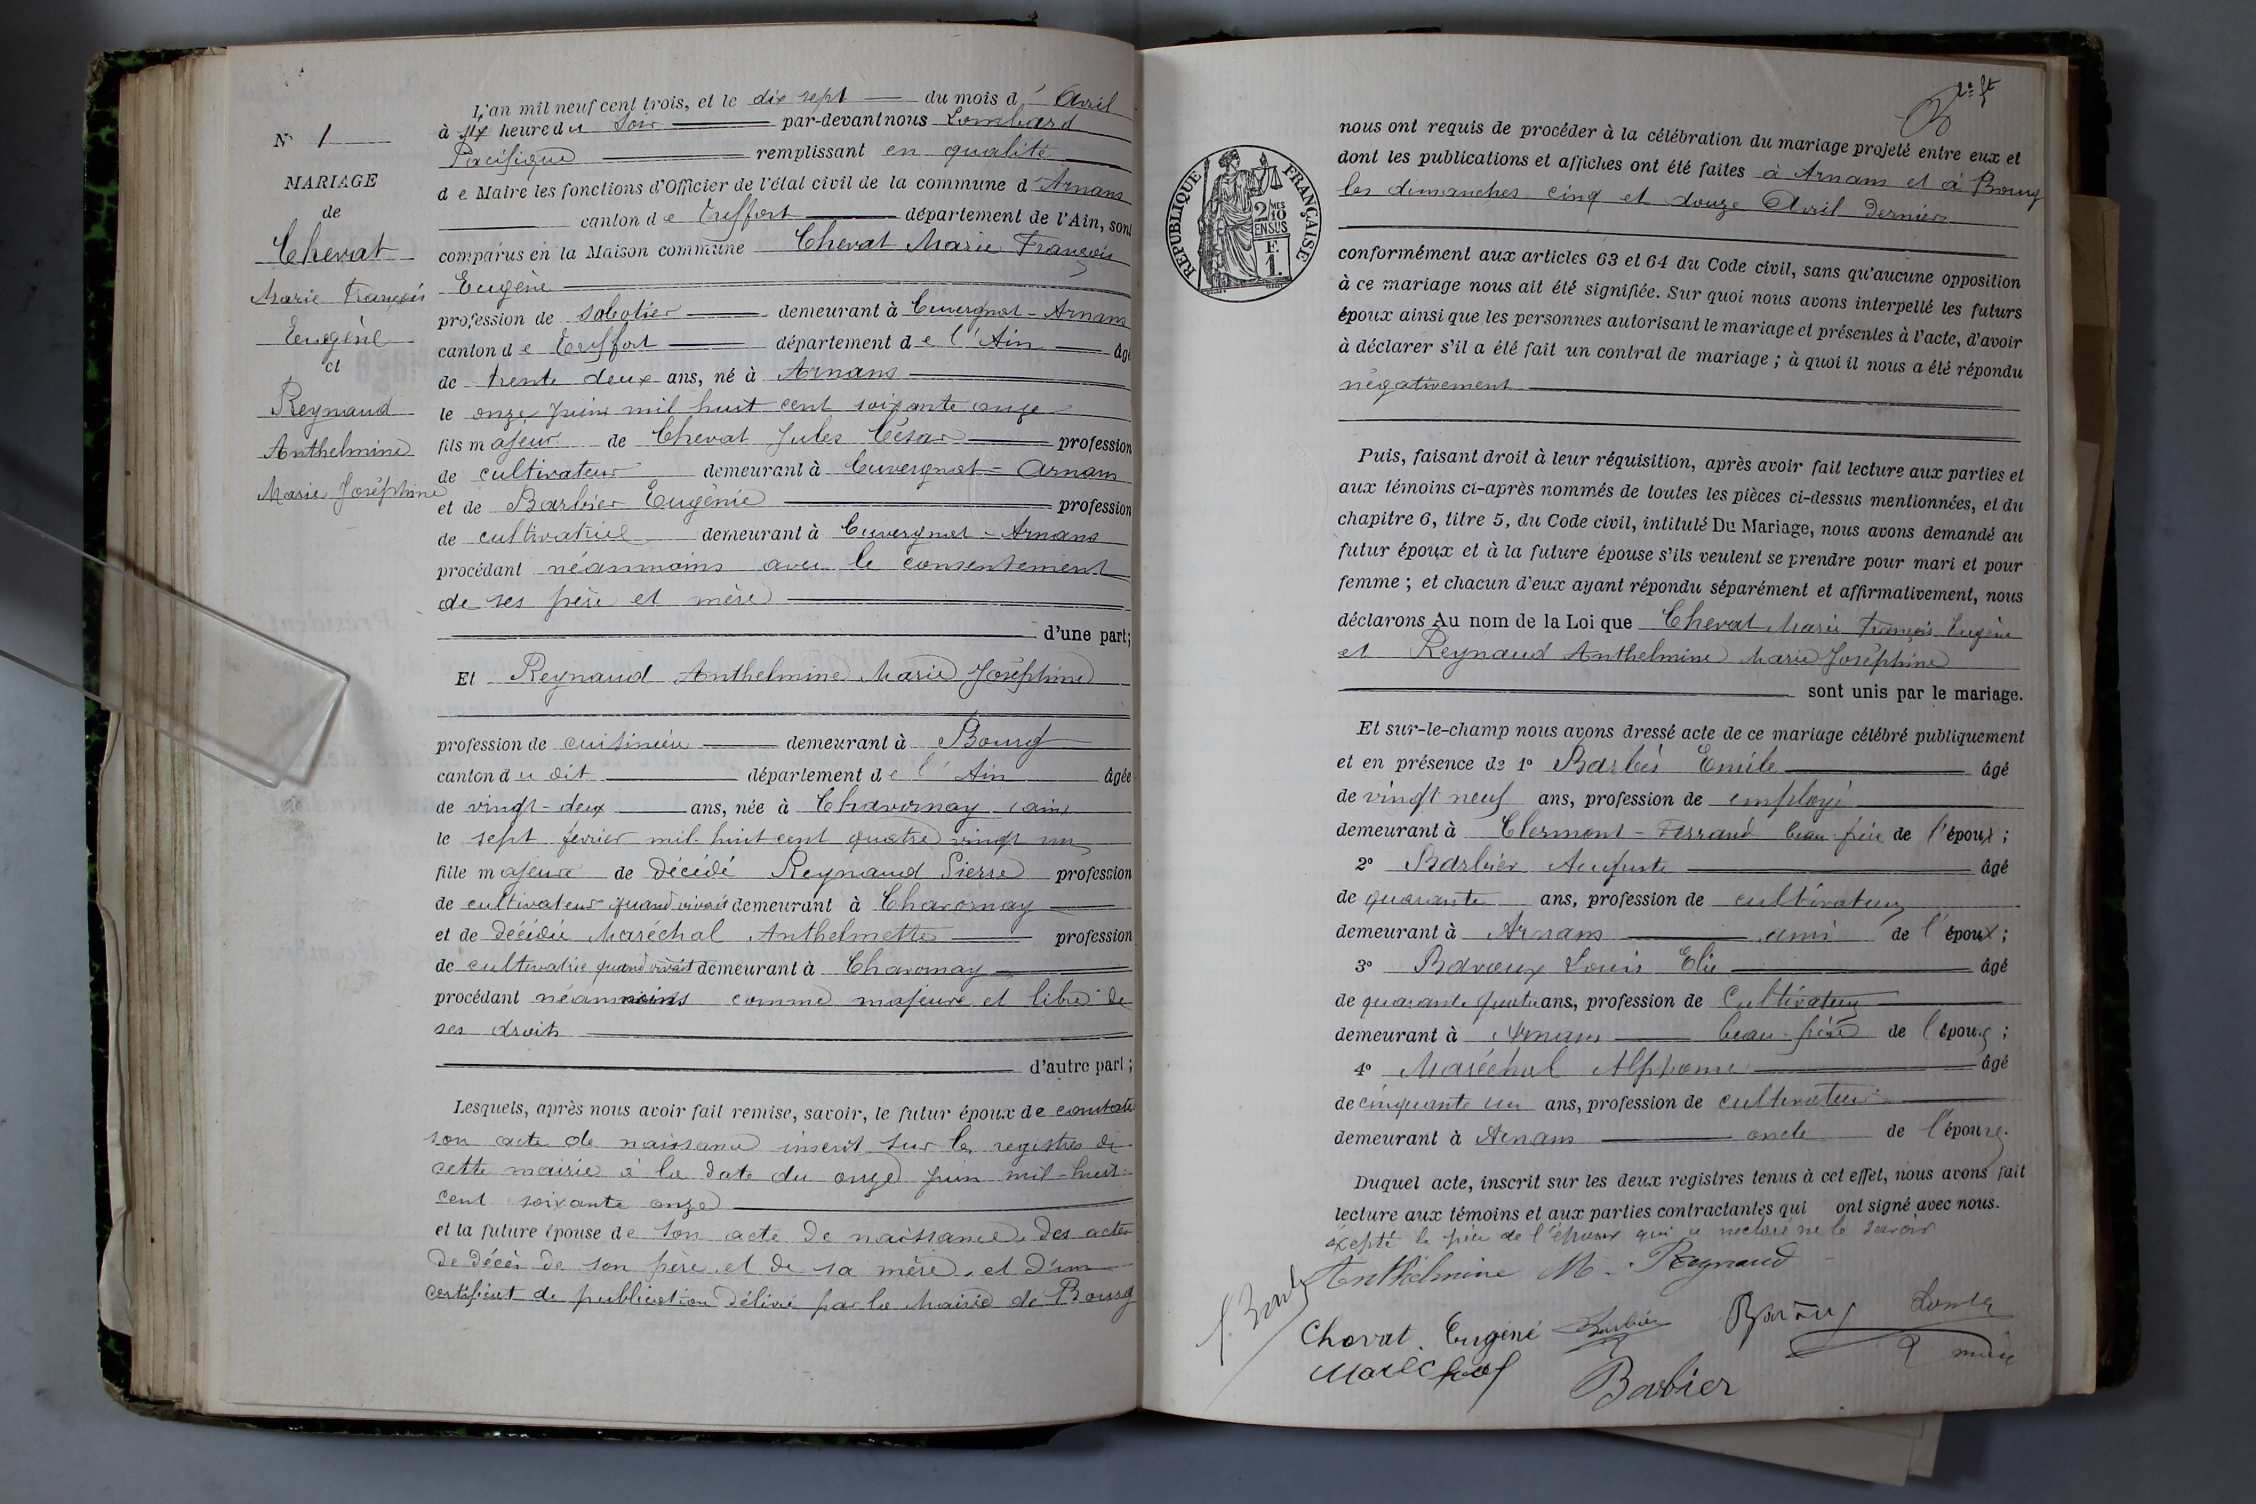 L'an mil neuf cent trois, et le dix sept du mois d' Avril
à six heure du Soir par-devant nous Lombard
Pacifique remplissant en qualité
de Maire les fonctions d'Officier de l'état civil de la commune d Arnans
canton de Treffort département de l'Ain, sont
comparus en la Maison commune Chevat Marie François
Eugène
profession de sabotier demeurant à Cuvergnat - Arnans
canton de Treffort département de l'Ain âgé
de trente deux ans, né à Arnans
le onze Juin mil huit cent soixante onze
fils majeur de Chevat Jules César profession
de cultivateur demeurant à Cuvergnat - Arnans
et de Barbier Eugénie profession
de cultivatrice demeurant à Cuvergnat - Arnans
procédant néanmoins avec le consentement
de ses père et mère
d'une part;
N° 1
MARIAGE
de
Chevat
Marie François
Eugène
et
Reynaud
Anthelmine
Marie Joséphine
Et Reynaud Anthelmine Marie Joséphine
profession de cuisinière demeurant à Bourg
canton du dit département de l'Ain âgée
de vingt-deux ans, née à Chavornay (Ain)
le sept février mil huit cent quatre vingt un
fille majeure de décédé Reynaud Pierre profession
de cultivateur quand vivait demeurant à Chavornay
et de décédée Maréchal Anthelmette profession
de cultivatrice quand vivait demeurant à Chavornay
procédant néanmoins comme majeure et libre de
ses droits
d'autre part;
Lesquels, après nous avoir fait remise, savoir, le futur époux de
son acte de naissance inscrit sur les registres de
cette mairie à la date du onze juin mil-huit-
cent soixante onze
et la future épouse de son acte de naissance, des actes
de décès de son père et de sa mère, et d'un
certificat de publication délivré par la Mairie de Bourg
nous ont requis de procéder à la célébration du mariage projeté entre eux et
dont les publications et affiches ont été faites à Arnans et à Bourg
les dimanches cinq et douze Avril derniers
RÉPUBLIQUE FRANÇAISE
2/10 MES
EN SUS
F.
1.
conformément aux articles 63 et 64 du Code civil, sans qu'aucune opposition
à ce mariage nous ait été signifiée. Sur quoi nous avons interpellé les futurs
époux ainsi que les personnes autorisant le mariage et présentes à l'acte, d'avoir
à déclarer s'il a été fait un contrat de mariage; à quoi il nous a été répondu
négativement
Puis, faisant droit à leur réquisition, après avoir fait lecture aux parties et
aux témoins ci-après nommés de toutes les pièces ci-dessus mentionnées, et du
chapitre 6, titre 5, du Code civil, intitulé Du Mariage, nous avons demandé au
futur époux et à la future épouse s'ils veulent se prendre pour mari et pour
femme; et chacun d'eux ayant répondu séparément et affirmativement, nous
déclarons Au nom de la Loi que Chevat Marie François Eugène
et Reynaud Anthelmine Marie Joséphine
sont unis par le mariage.
Et sur-le-champ nous avons dressé acte de ce mariage célébré publiquement
et en présence de 1° Emile âgé
de vingt neuf ans, profession de employé
demeurant à Clermont-Ferrand beau-frère de l'époux;
2° Barbier Auguste âgé
de quarante ans, profession de cultivateur
demeurant à Arnans ami de l'époux;
3° Louis Elie âgé
de quarante quatre ans, profession de Cultivateur
demeurant à Arnans beau-frère de l'épouse;
4° Maréchal Alphonse âgé
de cinquante un ans, profession de cultivateur
demeurant à Arnans oncle de l'épouse.
Duquel acte, inscrit sur les deux registres tenus à cet effet, nous avons fait
lecture aux témoins et aux parties contractantes qui ont signé avec nous.
excepté le père de l'époux qui a déclaré ne le savoir
Anthelmine M. Reynaud
Chevat Eugène Barbier
Maréchal
Barbier